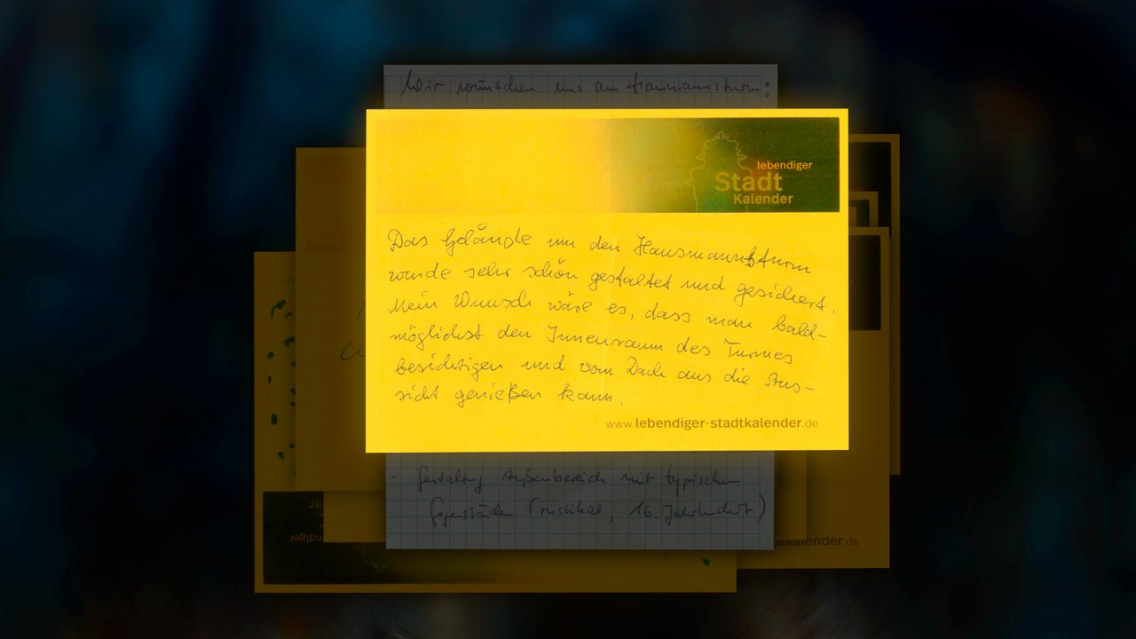 Wir wünschen uns am Hausmannsturm:
lebendiger
Stadt
Kalender
Das Gelände um den Hausmannsturm
wurde sehr schön gestaltet und gesichert.
Mein Wunsch wäre es, dass man bald-
möglichst den Innenraum des Turmes
besichtigen und vom Dach aus die Aus-
sicht genießen kann.
www.lebendiger-stadtkalender.de
- Gestaltung Außenbereich mit typischen
Gegenständen (rustikal, 16. Jahrhundert)
kalender.de